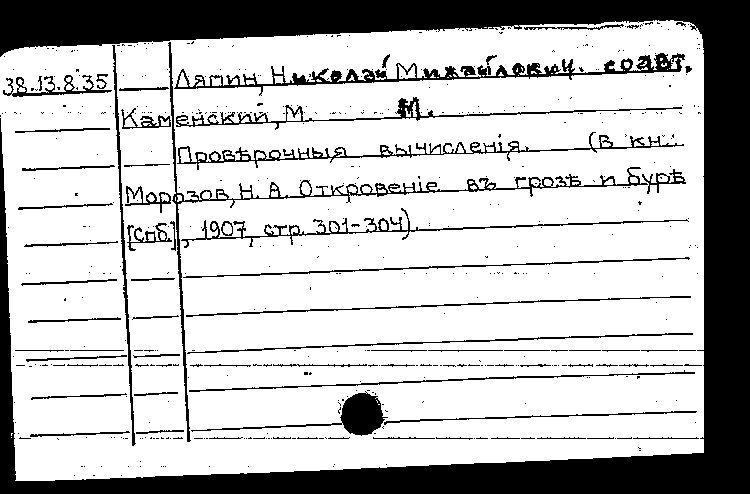 38.13.8.35 Ляпин, Николай Михайлович. соавт.
Каменский, М. М.
Провѣрочныя вычисленія. (в кн.:
Морозов, Н. А. Откровеніе въ грозѣ и бурѣ
[Спб], 1907, стр. 301-304).